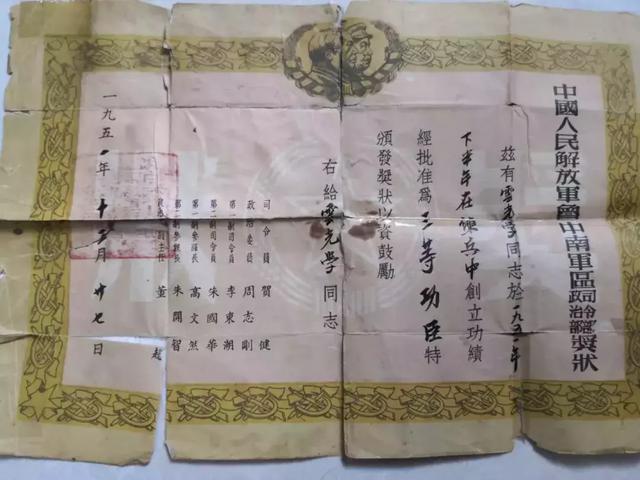 中國人民解放軍魯中南軍區司令部政治部獎狀
茲有雲光學同志於一九五一年
下半年在練兵中創立功績
經批准爲三等功臣特
頒發獎狀以資鼓勵
右給雲光學同志
司令員 賀健
政治委員 周志剛
第一副司令員 李東湖
第二副司令員 朱國華
參謀長 高文然
副參謀長 朱開智
副主任 董超
一九五一年十二月廿七日